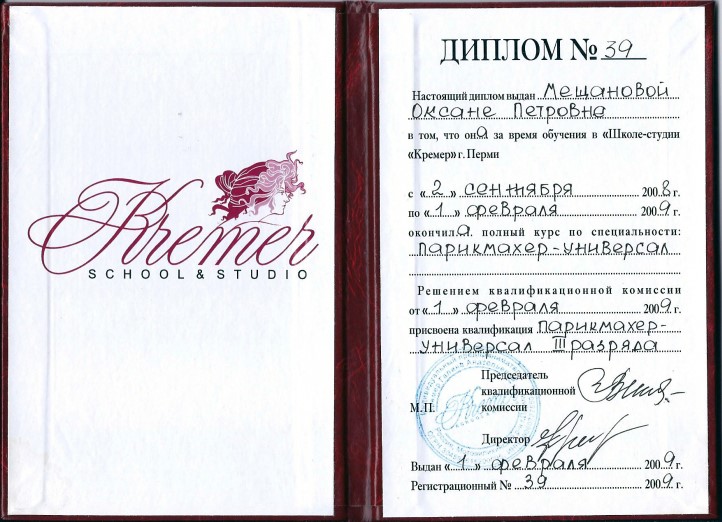 Kremer
SCHOOL & STUDIO
ДИПЛОМ № 39
Настоящий диплом выдан Мещановой
Оксане Петровна
в том, что она за время обучения в «Школе-студии
«Кремер» г. Перми
с « 2 » сентября 2008 г.
по « 1 » февраля 2009 г.
окончила полный курс по специальности:
Парикмахер-универсал
Решением квалификационной комиссии
от « 1 » февраля 2009 г.
присвоена квалификация Парикмахер-
универсал III разряда
Председатель
квалификационной
М.П. комиссии
Директор
Выдан « 1 » февраля 2009 г.
Регистрационный № 39 2009 г.